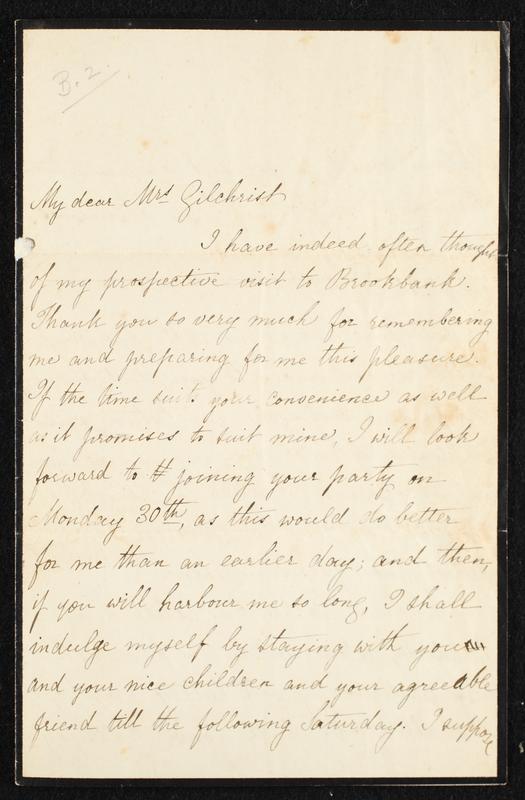 B. 2.
My dear Mrs Gilchrist
I have indeed often thought
of my prospective visit to Brookbank.
Thank you so very much for remembering
me and preparing for me this pleasure.
If the time suits your convenience as well
as it promises to suit mine, I will look
forward to joining your party on
Monday 30th, as this would do better
for me than an earlier day; and then,
if you will harbour me so long, I shall
indulge myself by staying with you
and your nice children and your agreeable
friend till the following Saturday. I suppose